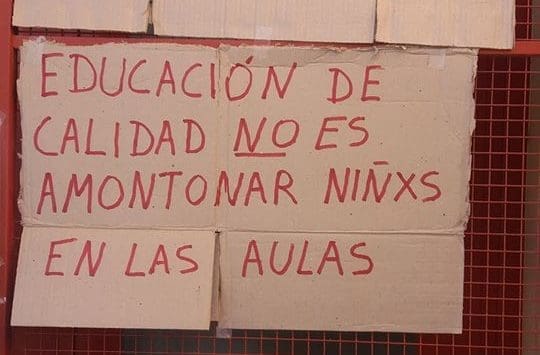 EDUCACIÓN DE
CALIDAD NO ES
AMONTONAR NIÑXS
EN LAS AULAS